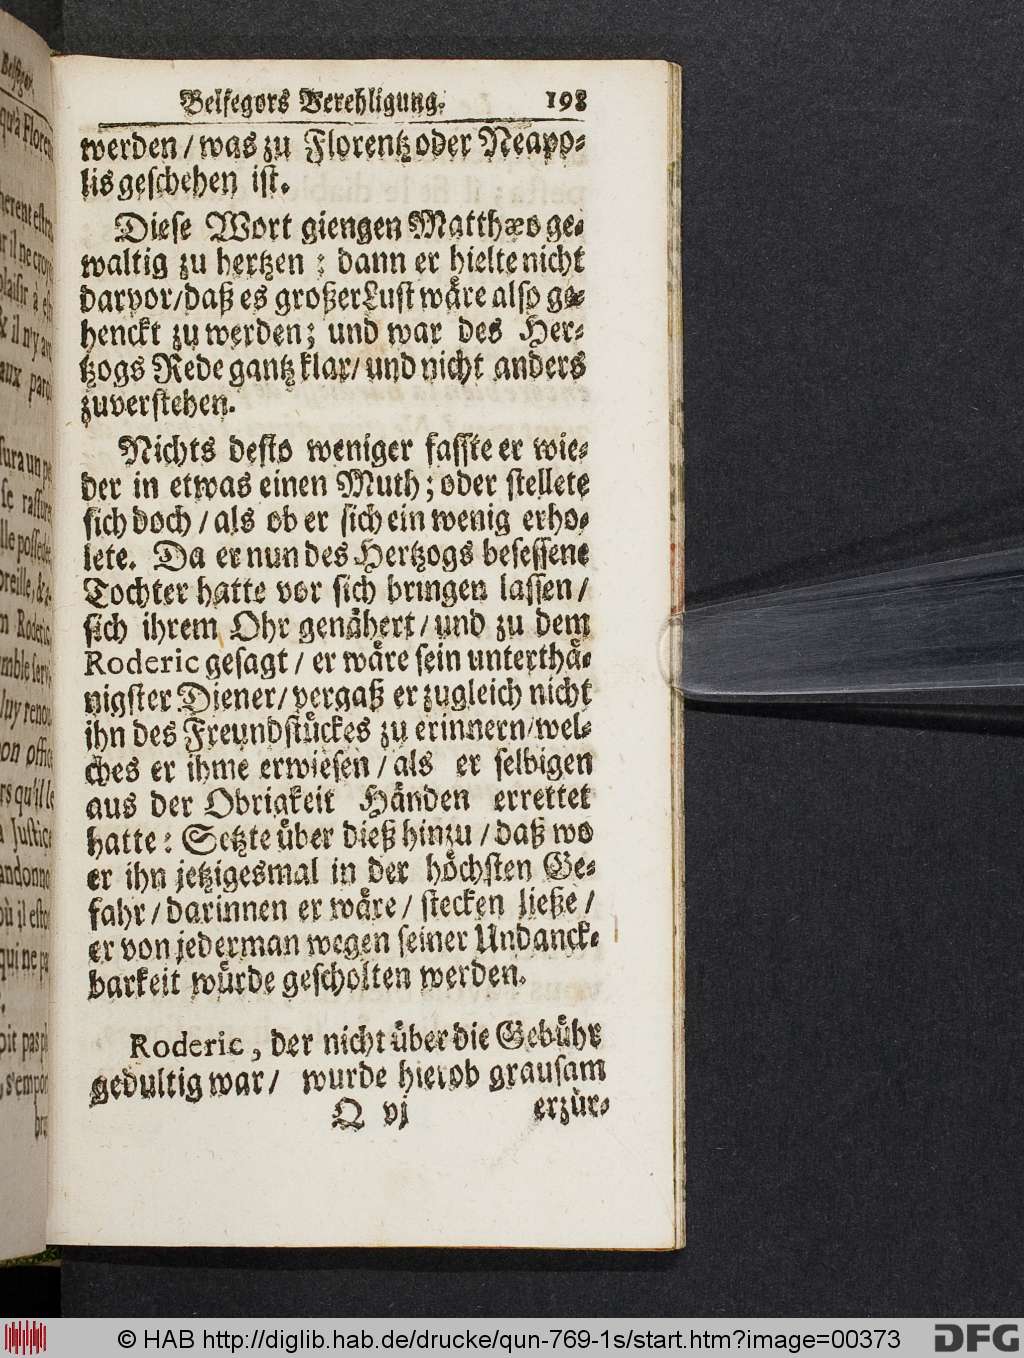 Belfegors Verehligung. 198
werden / was zu Florentz oder Neapo-
lis geschehen ist.
Diese Wort giengen Matthæo ge-
waltig zu hertzen ; dann er hielte nicht
darvor/daß es großer Lust wäre also ge-
henckt zu werden; und war des Her-
tzogs Rede gantz klar/ und nicht anders
zuverstehen.
Nichts desto weniger fasste er wie-
der in etwas einen Muth; oder stellete
sich doch / als ob er sich ein wenig erho-
lete. Da er nun des Hertzogs besessene
Tochter hatte vor sich bringen lassen /
sich ihrem Ohr genähert / und zu dem
Roderic gesagt / er wäre sein unterthä-
nigster Diener/ vergaß er zugleich nicht
ihn des Freundstückes zu erinnern/wel-
ches er ihme erwiesen / als er selbigen
aus der Obrigkeit Händen errettet
hatte : Setzte über dieß hinzu / daß wo
er ihn jetzigesmal in der höchsten Ge-
fahr / darinnen er wäre / stecken ließe /
er von jederman wegen seiner Undanck-
barkeit würde gescholten werden.
Roderic, der nicht über die Gebühr
gedultig war / wurde hierob grausam
Q vj erzür-
© HAB http://diglib.hab.de/drucke/qun-769-1s/start.htm?image=00373
DFG